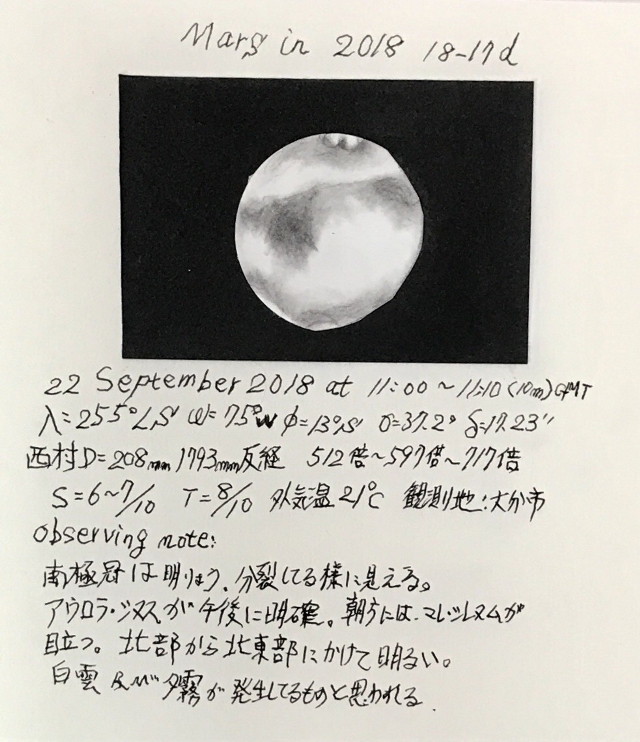 Mars in 2018 18-17d
22 September 2018 at 11:00~11:10 (10m) GMT
λ=255°Ls ω=75°W φ=13°S θ=37.2° δ=17.23"
西村D=208mm 1793mm反経 512倍~597倍~717倍
S=6~7/10 T=8/10 外気温21°C 観測地:大分市
Observing note:
南極冠は明りょう、分裂してる様に見える。
アウロラ・シヌスが午後に明確。朝方には、マレ・シレヌムが
目立つ。北部から北東部にかけて明るい。
白雲及び夕霧が発生してるものと思われる。